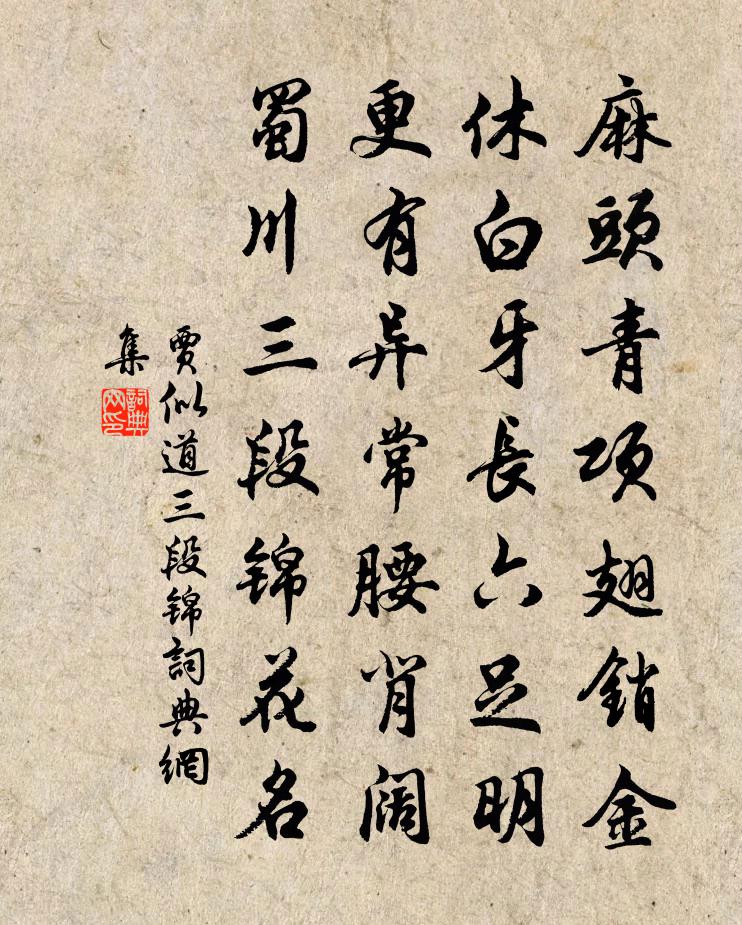 麻頭青項翅銷金
休白牙長六足明
更有异常腰背阔
蜀川三段锦花名
賈似道三段锦詞典網
集
詞典
网印